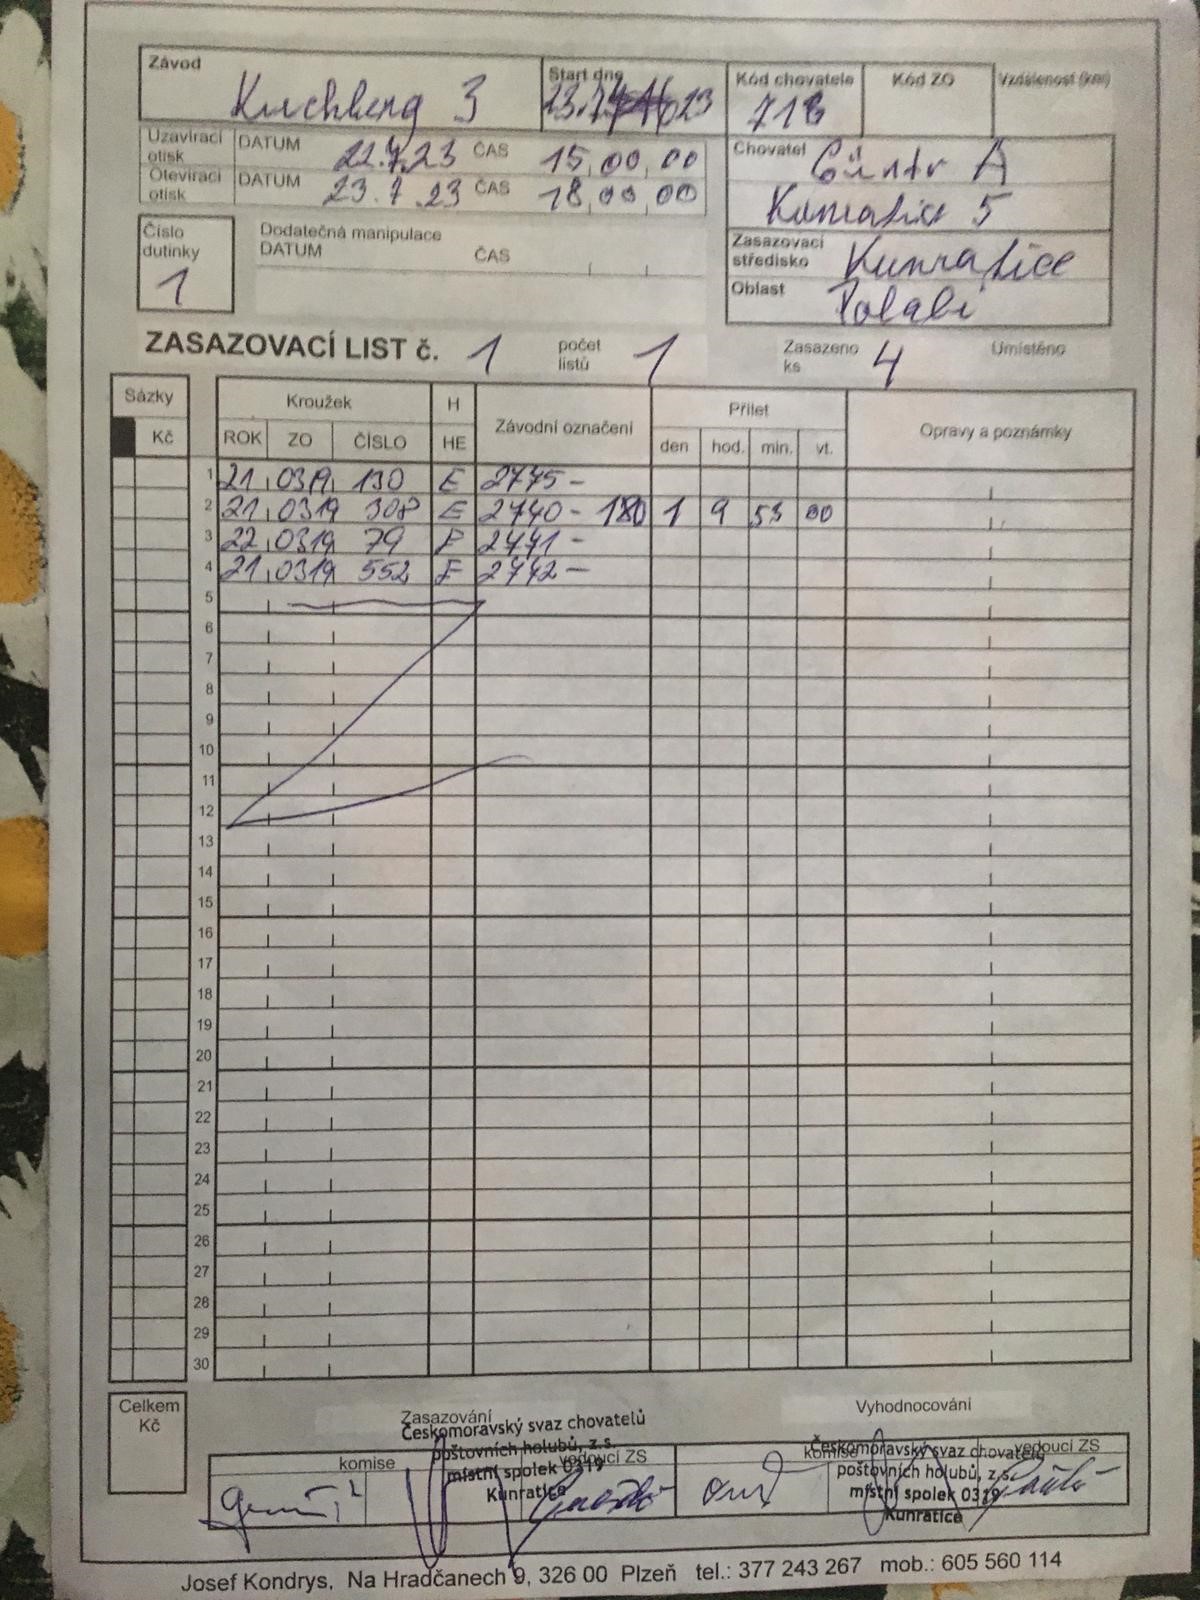 Závod
Kirchberg 3
Start dne
23.7. 23
Kód chovatele
718
Kód ZO
Vzdálenost (km)
Uzavírací otisk DATUM 22.7.23 ČAS 15,00,00
Otevírací otisk DATUM 23.7.23 ČAS 18,00,00
Chovatel Güntr A
Kunratice 5
Zasazovací středisko Kunratice
Oblast Polabí
Číslo dutinky
1
Dodatečná manipulace
DATUM ČAS
ZASAZOVACÍ LIST č. 1 počet listů 1 Zasazeno ks 4 Umístěno
Sázky Kroužek H Závodní označení Přílet Opravy a poznámky
Kč ROK ZO ČÍSLO HE den hod. min. vt.
1 21 0319 130 E 2775 -
2 21 0319 308 E 2740 - 180 1 9 53 00
3 22 0319 79 2771 -
4 21 0319 552 E 2772 -
5
6
7
8
9
10
11
12
13
14
15
16
17
18
19
20
21
22
23
24
25
26
27
28
29
30
Celkem
Kč
Zasazování
Českomoravský svaz chovatelů
poštovních holubů, z.s.
místní spolek 0319
Kunratice
komise vedoucí ZS
Vyhodnocování
Českomoravský svaz chovatelů
poštovních holubů, z.s.
místní spolek 0319
Kunratice
komise vedoucí ZS
Josef Kondrys, Na Hradčanech 9, 326 00 Plzeň tel.: 377 243 267 mob.: 605 560 114